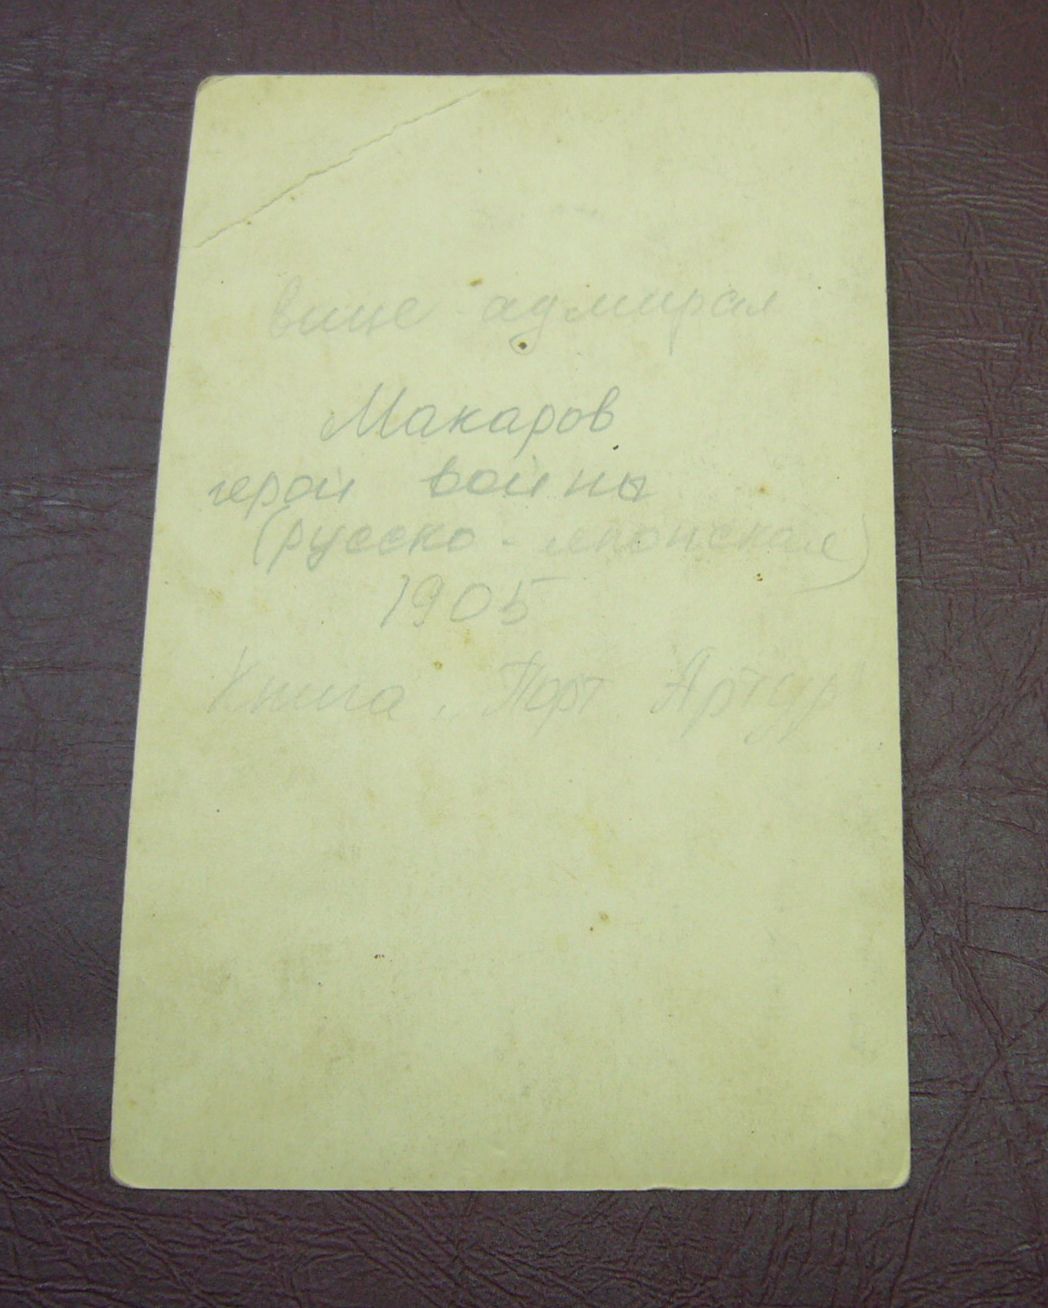 вице адмирал
Макаров
герой войны
(русско - японская)
1905
Книга "Порт Артур